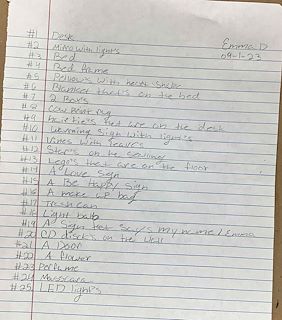 #1 Desk
Emma D
#2 Miro with lights
09-1-23
#3 Bed
#4 Bed frame
#5 Pellows with heart shape
#6 Blanket that's on the bed
#7 2 Box's
#8 Cow Print rug
#9 that are on the desk
#10 sign with light's
#11 Vines with leaves
#12 Star's on the
#13 Lego's that are on the floor
#14 A Love Sign
#15 A Be Happy Sign
#16 A make up bag
#17 Trashcan
#18 Light bulb
#19 A Sign that say's my name / Emma
#20 CD disc's on the Wall
#21 A Door
#22 A flower
#23 Perfume
#24 Masscara
#25 LED light's